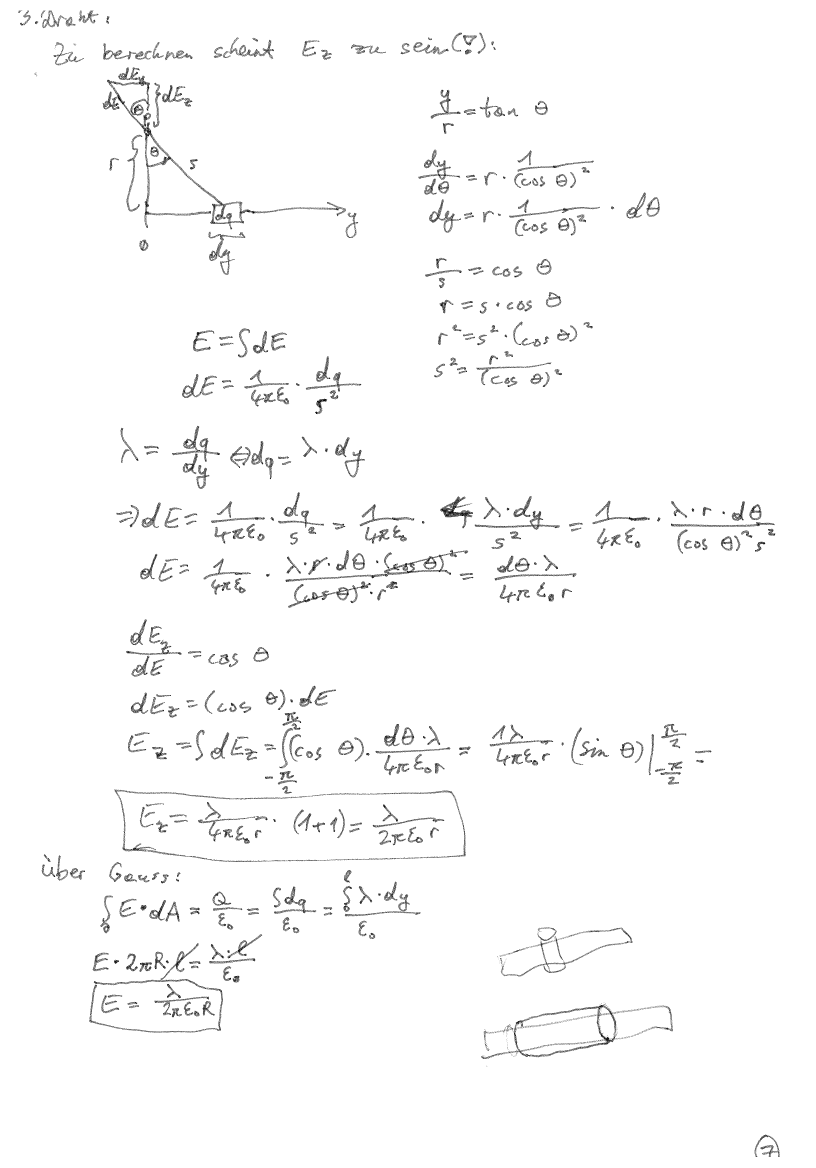 3. Draht:
Zu berechnen scheint E_z zu sein (!):
dE_y
dE θ } dE_z
r { θ s
dq y
0 dy
y/r = tan θ
dy/dθ = r · 1/(cos θ)²
dy = r · 1/(cos θ)² · dθ
r/s = cos θ
r = s · cos θ
r² = s² · (cos θ)²
s² = r²/(cos θ)²
E = ∫dE
dE = 1/4πε₀ · dq/s²
λ = dq/dy ⇔ dq = λ · dy
⇒ dE = 1/4πε₀ · dq/s² = 1/4πε₀ · λ·dy/s² = 1/4πε₀ · λ·r·dθ/(cos θ)² s²
dE = 1/4πε₀ · λ·r·dθ·(cos θ)²/(cos θ)²·r² = dθ·λ/4πε₀r
dE_z/dE = cos θ
dE_z = (cos θ) · dE
E_z = ∫dE_z = ∫_{-π/2}^{π/2} (cos θ) · dθ·λ/4πε₀r = 1λ/4πε₀r · (sin θ)|_{-π/2}^{π/2} =
E_z = λ/4πε₀r · (1+1) = λ/2πε₀r
über Gauss:
∫E•dA = Q/ε₀ = ∫dq/ε₀ = ∫₀^ℓ λ·dy/ε₀
E · 2πR·ℓ = λ·ℓ/ε₀
E = λ/2πε₀R
7